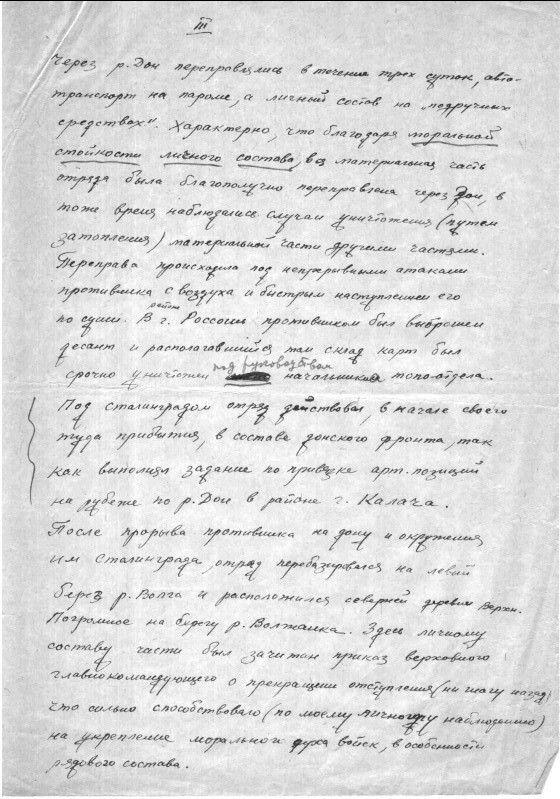 III
Через р. Дон переправлялись в течение трех суток, авто-
транспорт на пароме, а личный состав на подручных
средствах". Характерно, что благодаря моральной
стойкости личного состава, вся материальная часть
отряда была благополучно переправлена через Дон, в
тоже время наблюдались случаи уничтожения (путем
затопления) материальной части другими частями.
Переправа происходила под непрерывными атаками
противника с воздуха и быстрым наступлением его
по суши. В район г. Россошь противником был выброшен
десант и распологавшийся там склад карт был
срочно уничтожен под руководством начальника топоотдела.
Под сталинградом отряд действовал, в начале своего
туда прибытия, в составе донского фронта, так
как выполнял задание по привязке арт. позиций
на рубеже по р. Дон в районе г. Калача.
После прорыва противника на дону и окружения
им Сталинграда, отряд перебазировался на левый
берег р. Волга и расположился северней деревни Верхн.
Погромное на берегу р. Волжанка. Здесь личному
составу части был зачитан приказ верховного
главнокомандующего о прекращении отступления (ни шагу назад)
что сильно способствовало (по моему личному наблюдению)
на укрепление морального духа войск, в особенности
рядового состава.